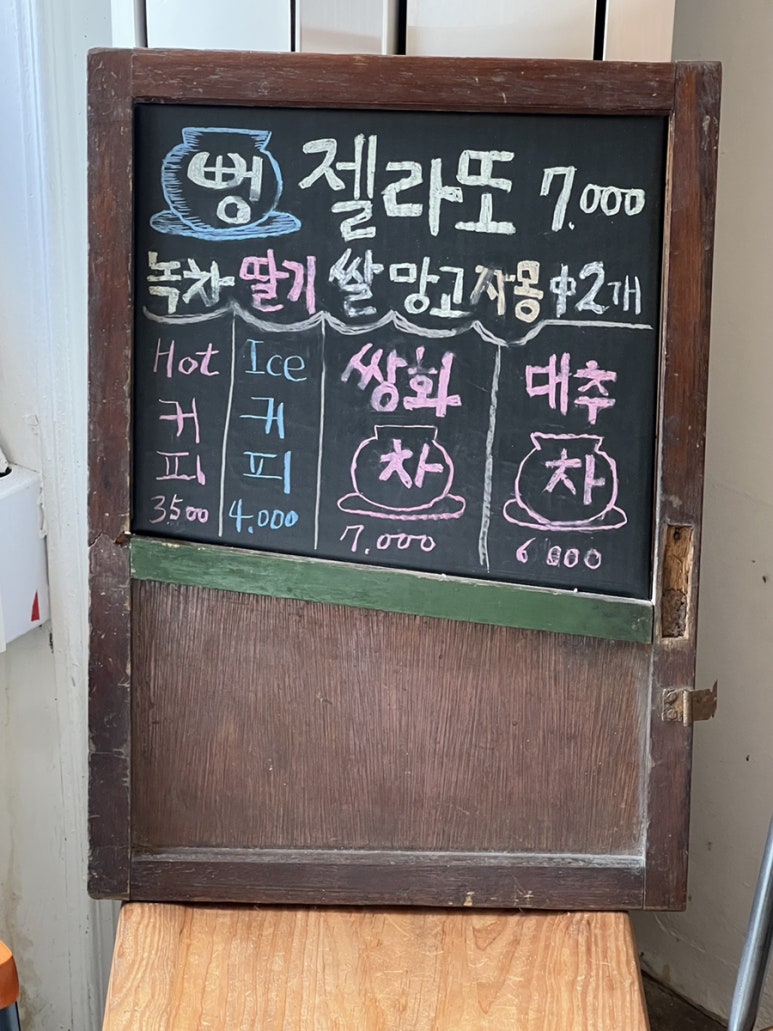 뻥 젤라또 7.000
녹차 딸기 쌀 망고 자몽 中 2개
Hot
커
피
3.500
Ice
커
피
4.000
쌍화
차
7.000
대추
차
6.000